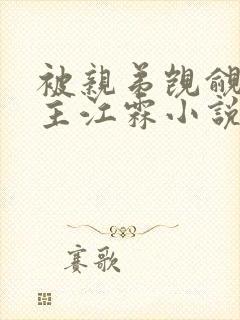 被親弟覬覦
主江霖小說
賽歌